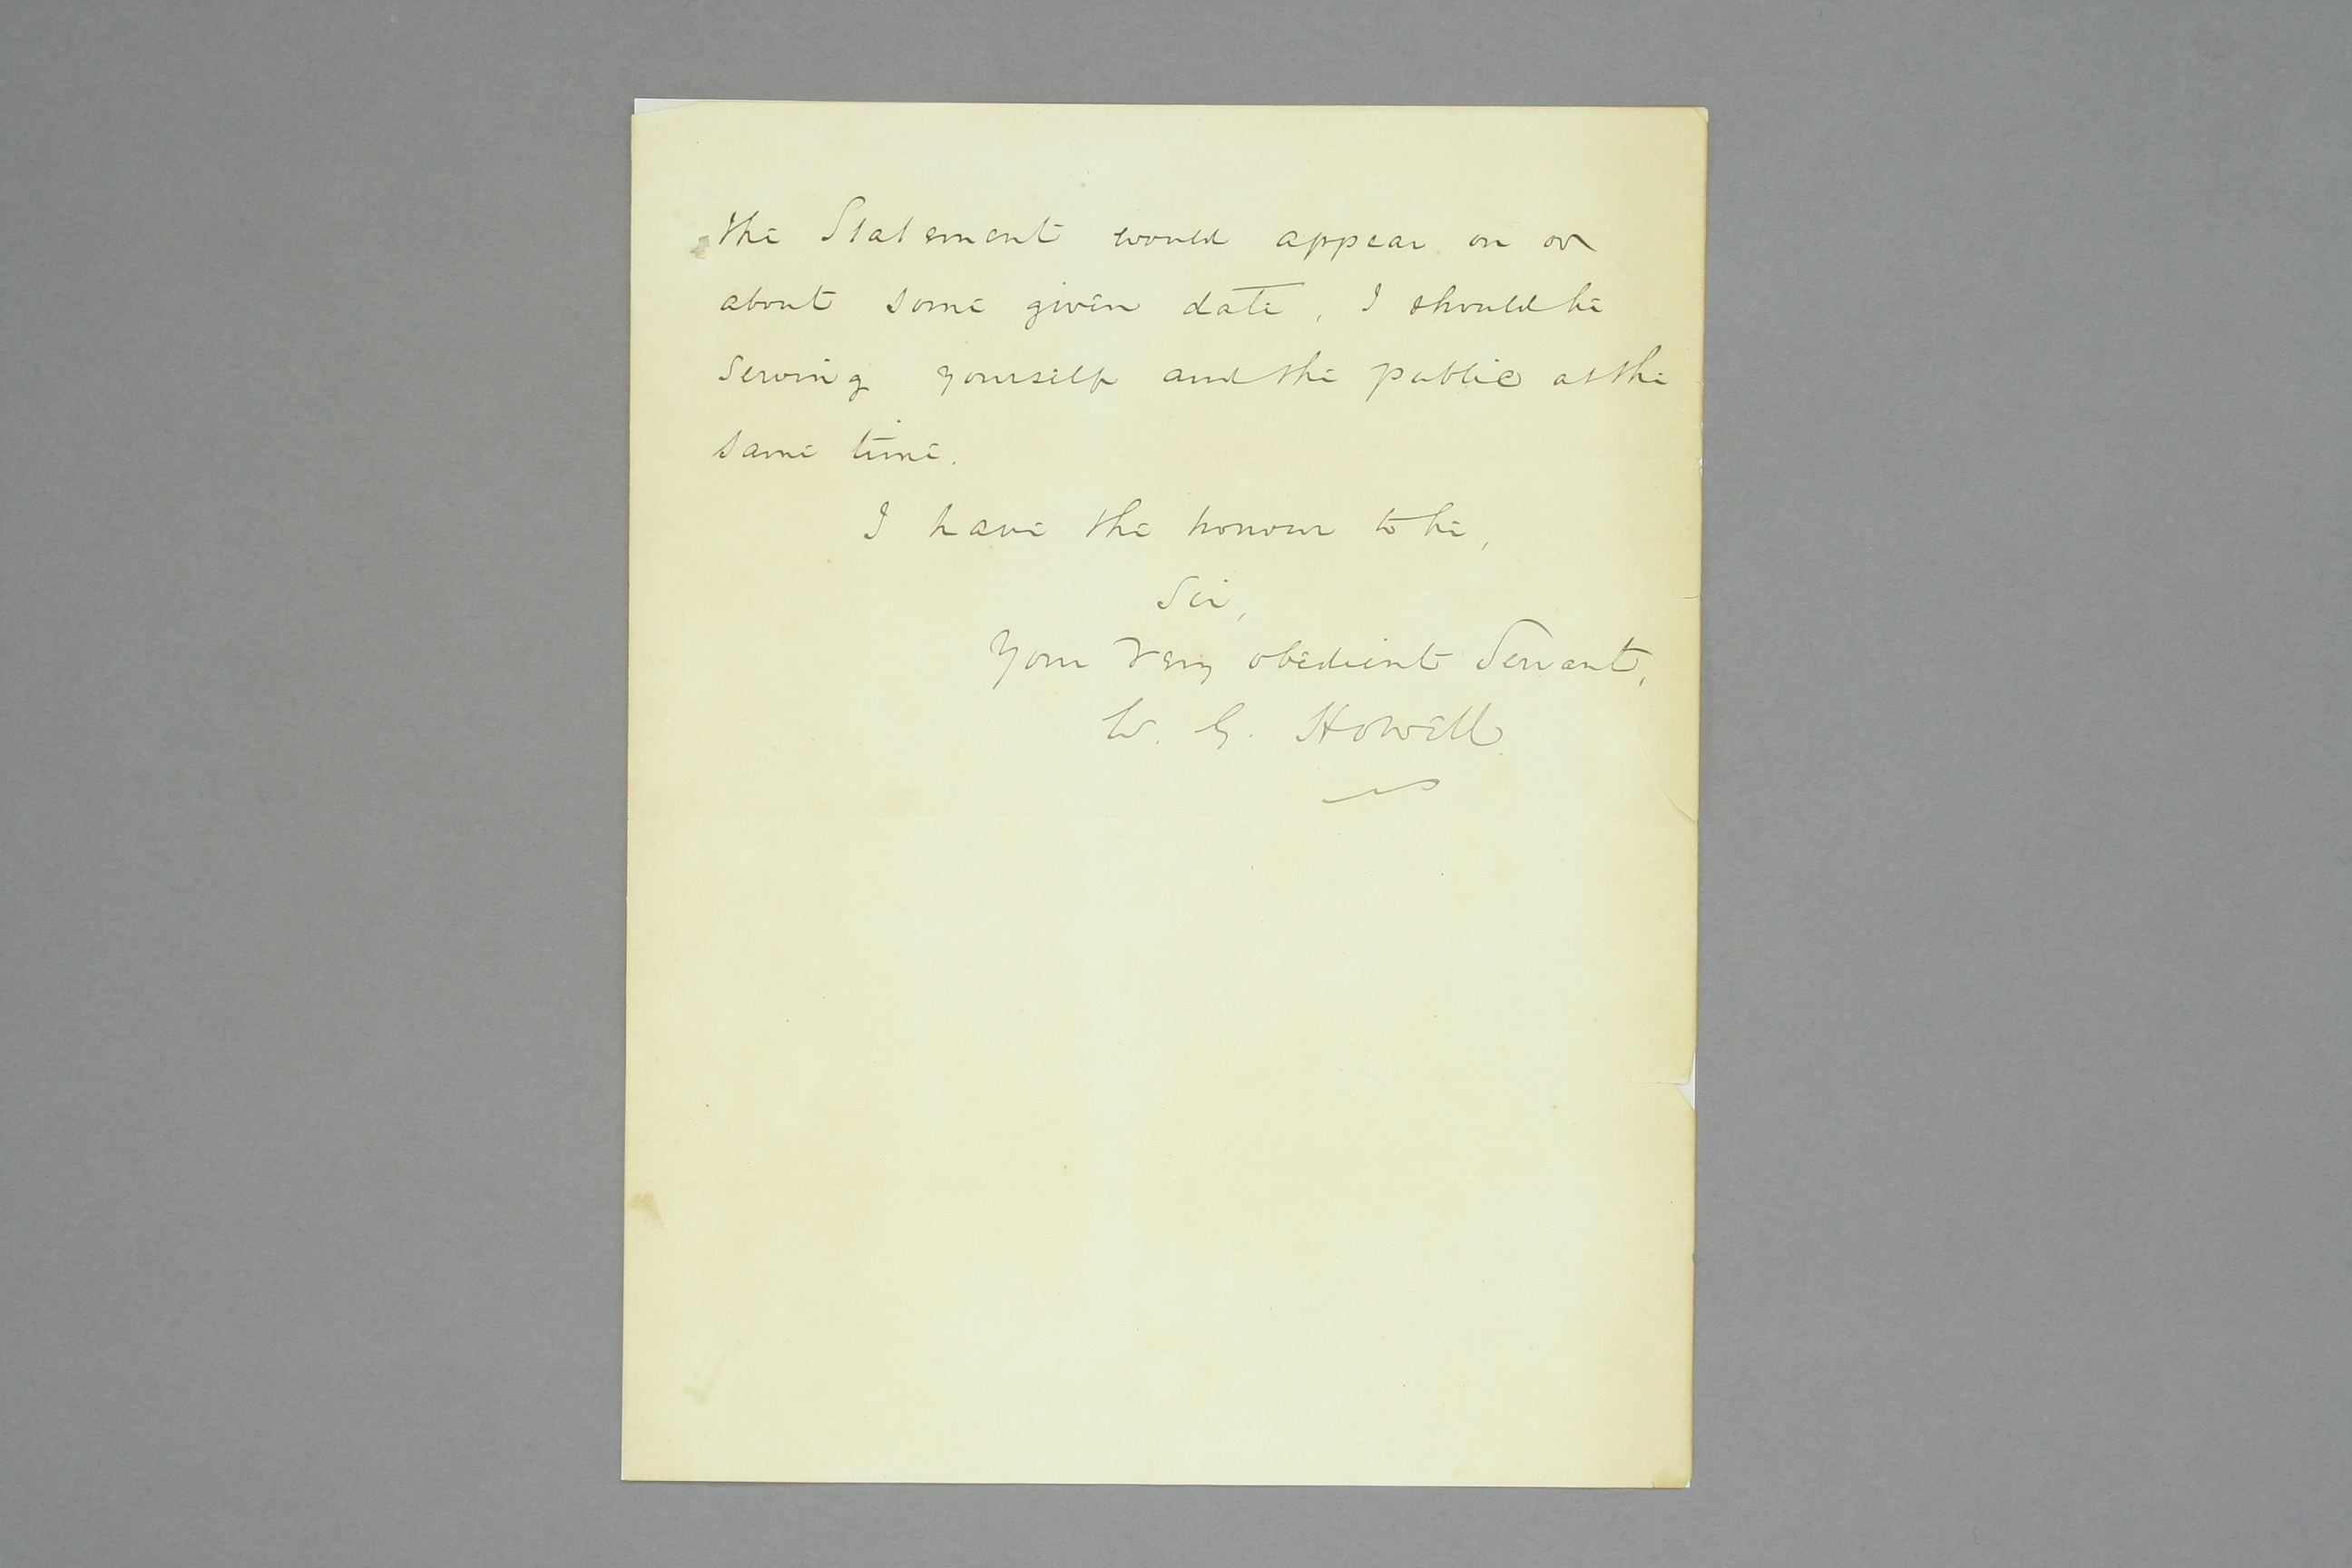 the Statement would appear on or
about some given date, I should be
serving yourself and the public at the
same time.
I have the honour to be,
Sir,
Your very obedient Servant,
W. G. Howell